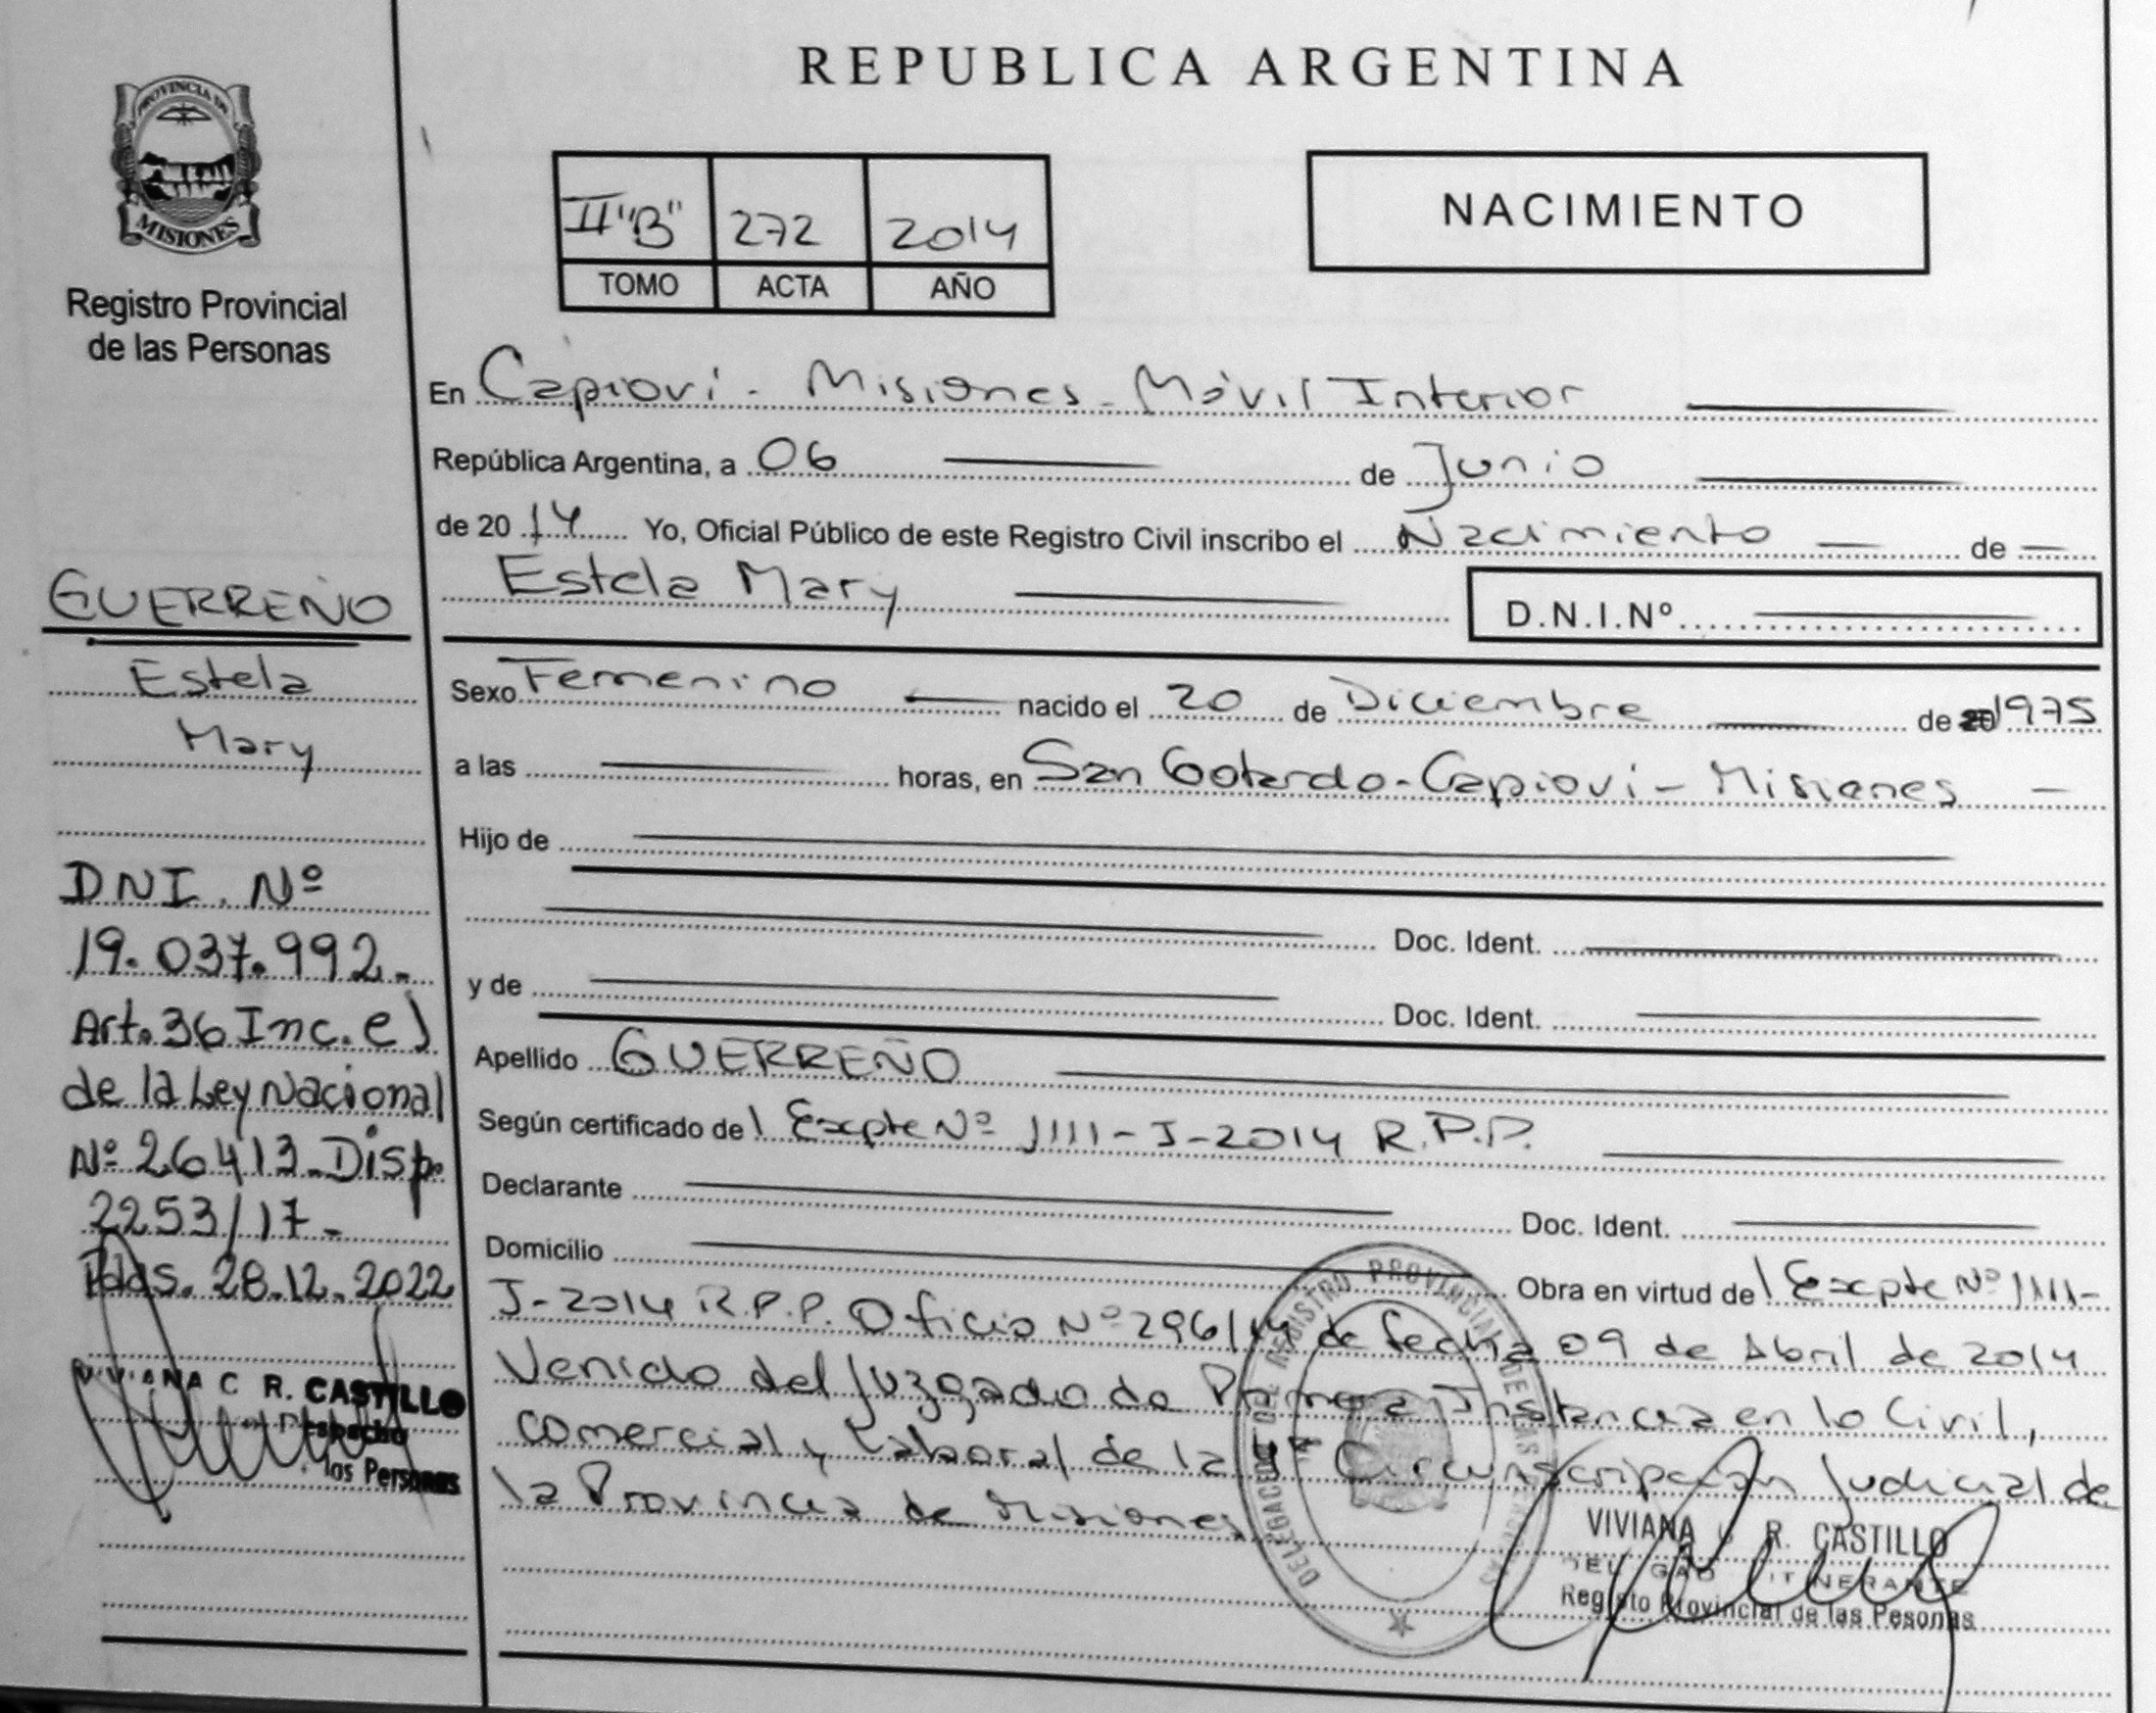 REPUBLICA ARGENTINA
PROVINCIA DE
MISIONES
Registro Provincial
de las Personas
II "B" 272 2014
TOMO ACTA AÑO
NACIMIENTO
En Capioví - Misiones - Móvil Interior
República Argentina, a 06 de Junio
de 2014 Yo, Oficial Público de este Registro Civil inscribo el Nacimiento de
Estela Mary D.N.I.Nº
Sexo Femenino nacido el 20 de Diciembre de 1975
a las horas, en San Gotardo - Capioví - Misiones
Hijo de
Doc. Ident.
y de
Doc. Ident.
Apellido GUERREÑO
Según certificado del Expte Nº 1111-J-2014 R.P.P.
Declarante
Doc. Ident.
Domicilio
Obra en virtud del Expte Nº 1111-
J-2014 R.P.P. Oficio Nº 296/14 de fecha 09 de Abril de 2014
Venido del Juzgado de Primera Instancia en lo Civil,
Comercial y Laboral de la Circunscripción Judicial de
la Provincia de Misiones
DELEGACION DEL REGISTRO PROVINCIAL DE LAS PERSONAS
VIVIANA C. R. CASTILLO
DELEGADO ITINERANTE
Registo Provincial de las Pesonas
GUERREÑO
Estela
Mary
DNI. Nº
19.037.992.-
Art. 36 Inc. e)
de la Ley Nacional
Nº 26413 - Disp.
2253/17.-
Pdas. 28.12.2022
VIVIANA C R. CASTILLO
Despacho
las Personas